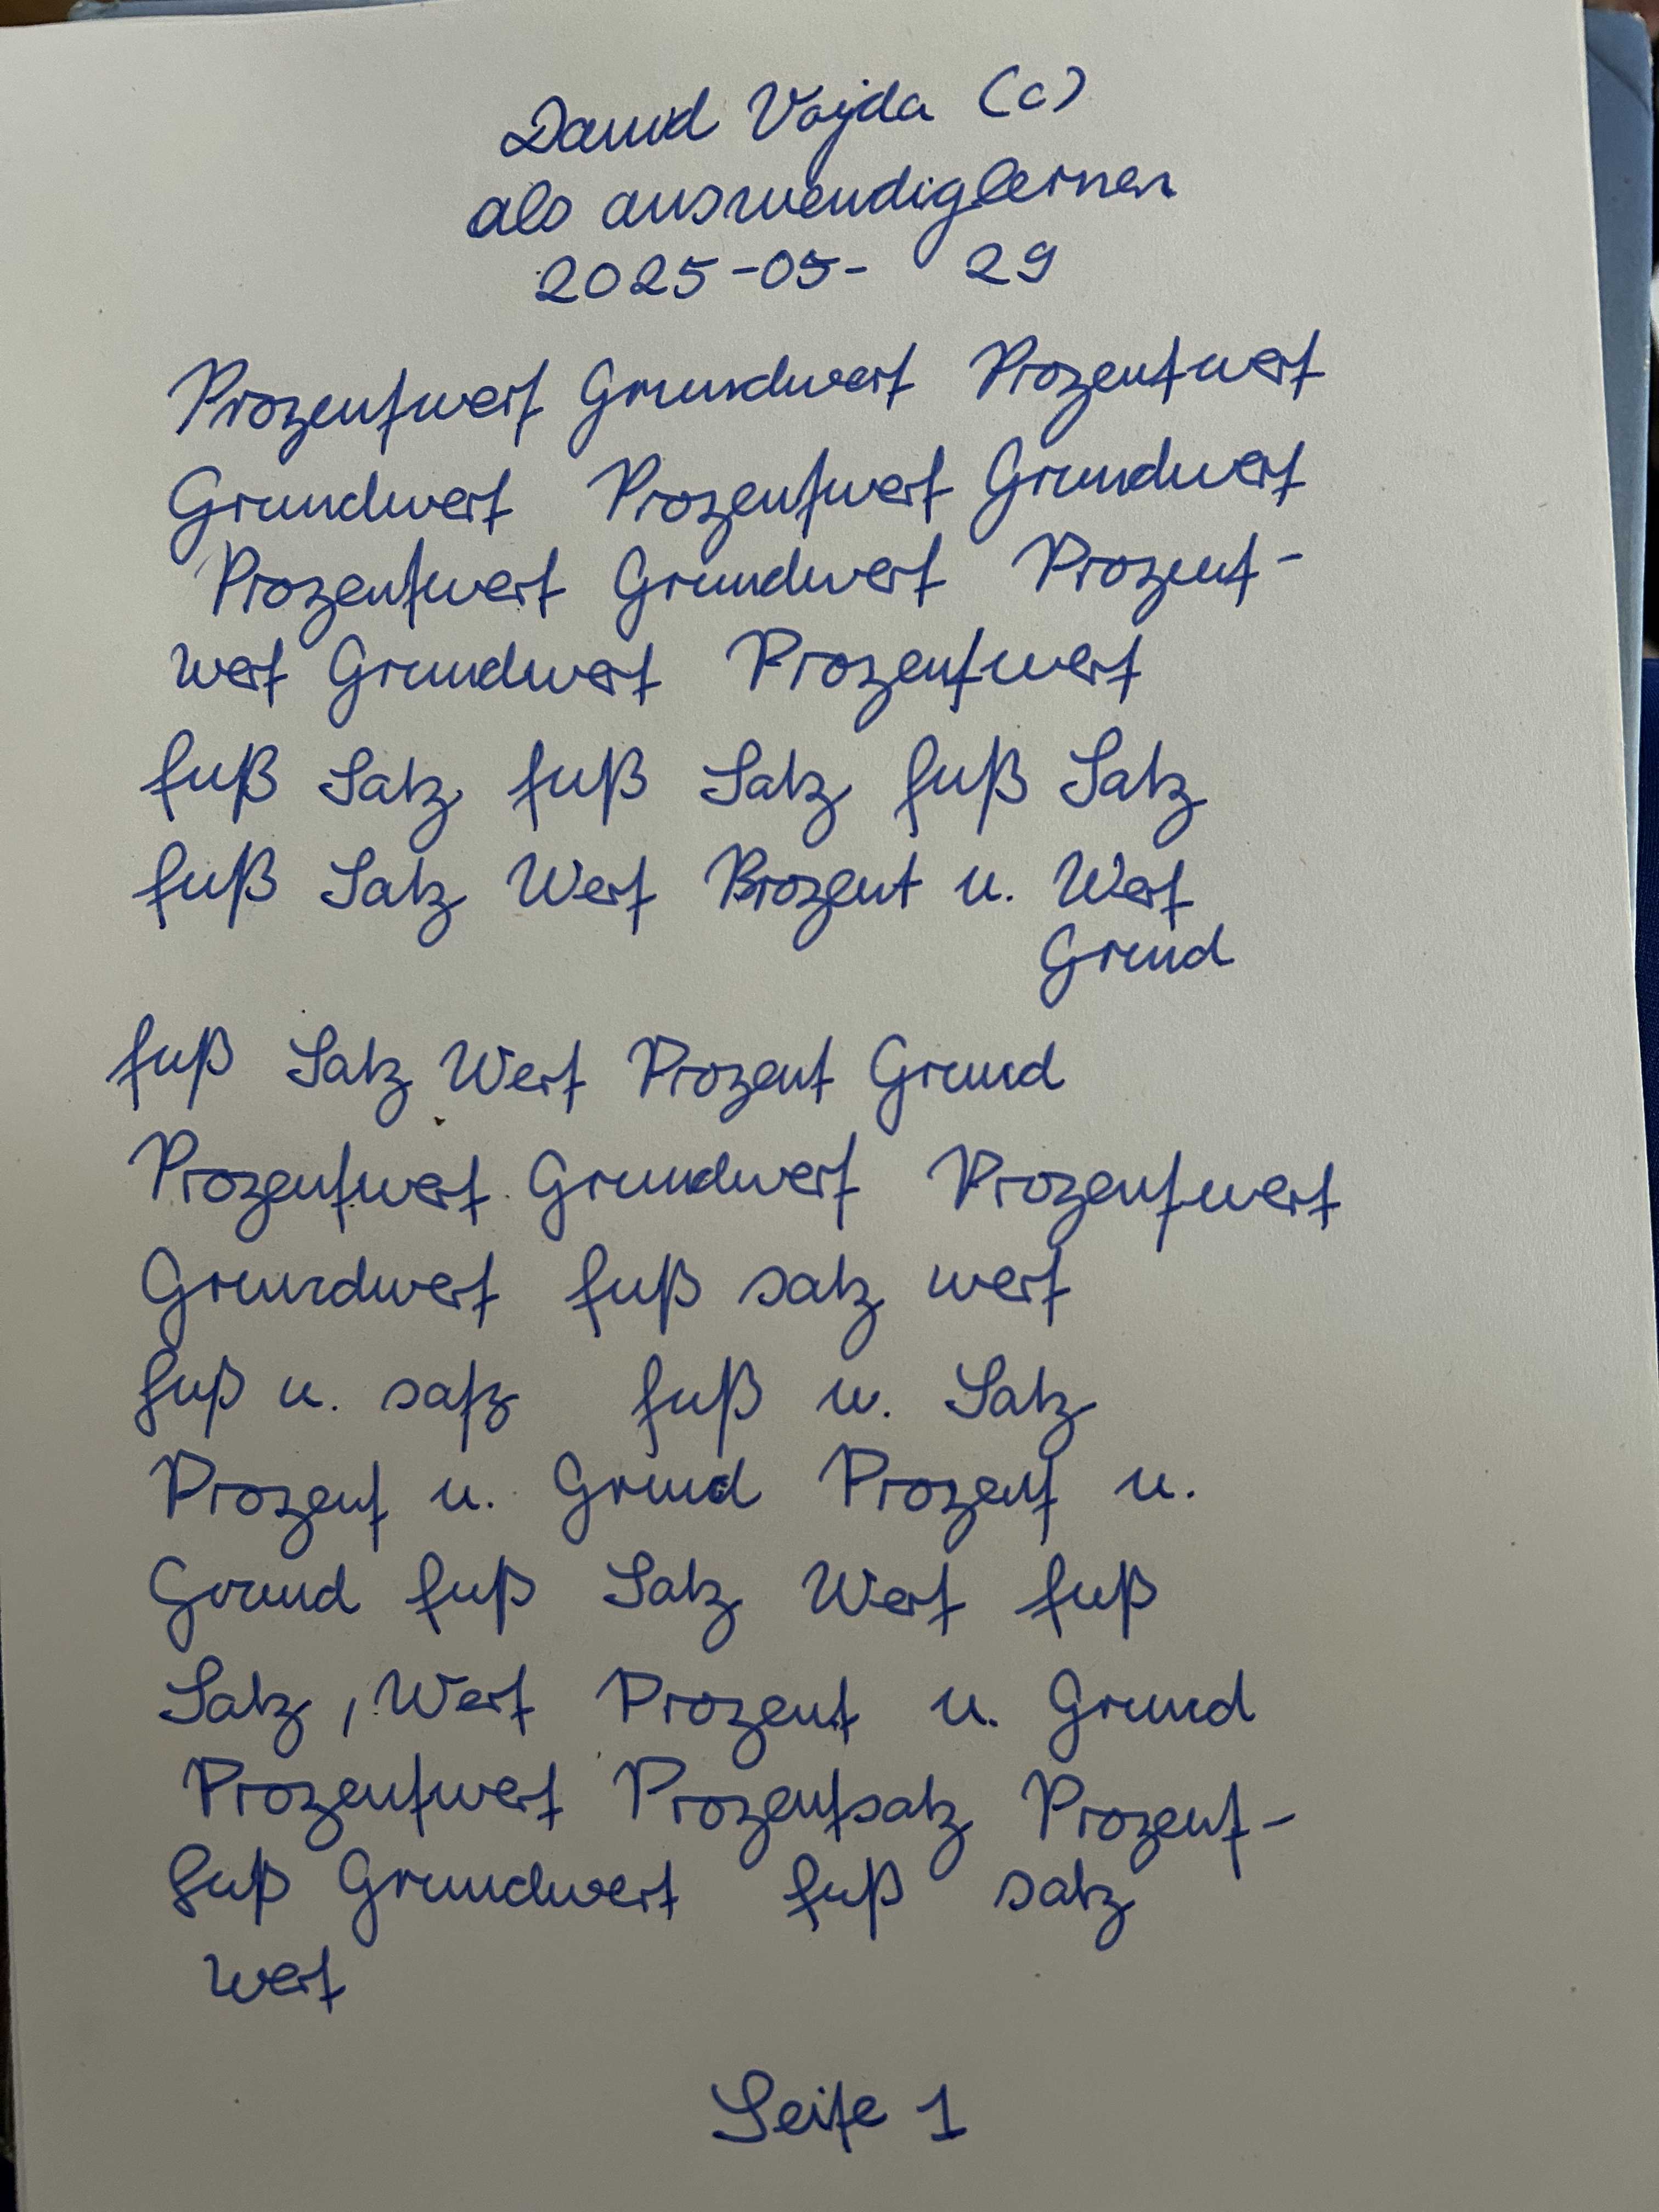 David Vajda (c)
als auswendiglernen
2025-05- 29
Prozentwert Grundwert Prozentwert
Grundwert Prozentwert Grundwert
Prozentwert Grundwert Prozent-
wert Grundwert Prozentwert
fuß Satz fuß Satz fuß Satz
fuß Satz Wert Prozent u. Wert
Grund
fuß Satz Wert Prozent Grund
Prozentwert Grundwert Prozentwert
Grundwert fuß satz wert
fuß u. satz fuß u. Satz
Prozent u. Grund Prozent u.
Grund fuß Satz Wert fuß
Satz, Wert Prozent u. Grund
Prozentwert Prozentsatz Prozent-
fuß Grundwert fuß satz
wert
Seite 1